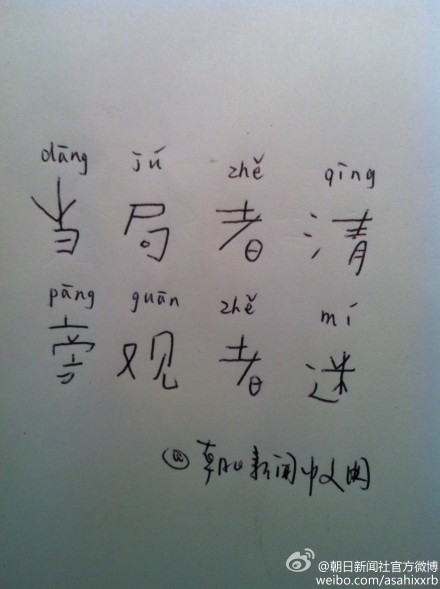 dāng jú zhě qīng
当局者清
pāng guān zhě mí
旁观者迷
@朝日新闻中文网
@朝日新闻社官方微博
weibo.com/asahixxrb